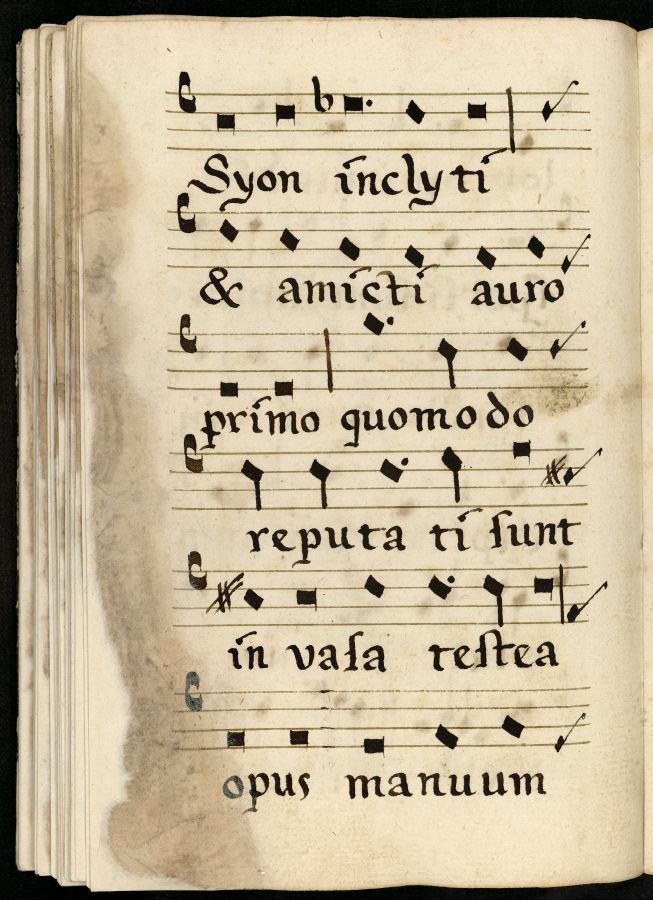 Syon inclyti
& amicti auro
primo quomodo
reputa ti sunt
in vasa testea
opus manuum